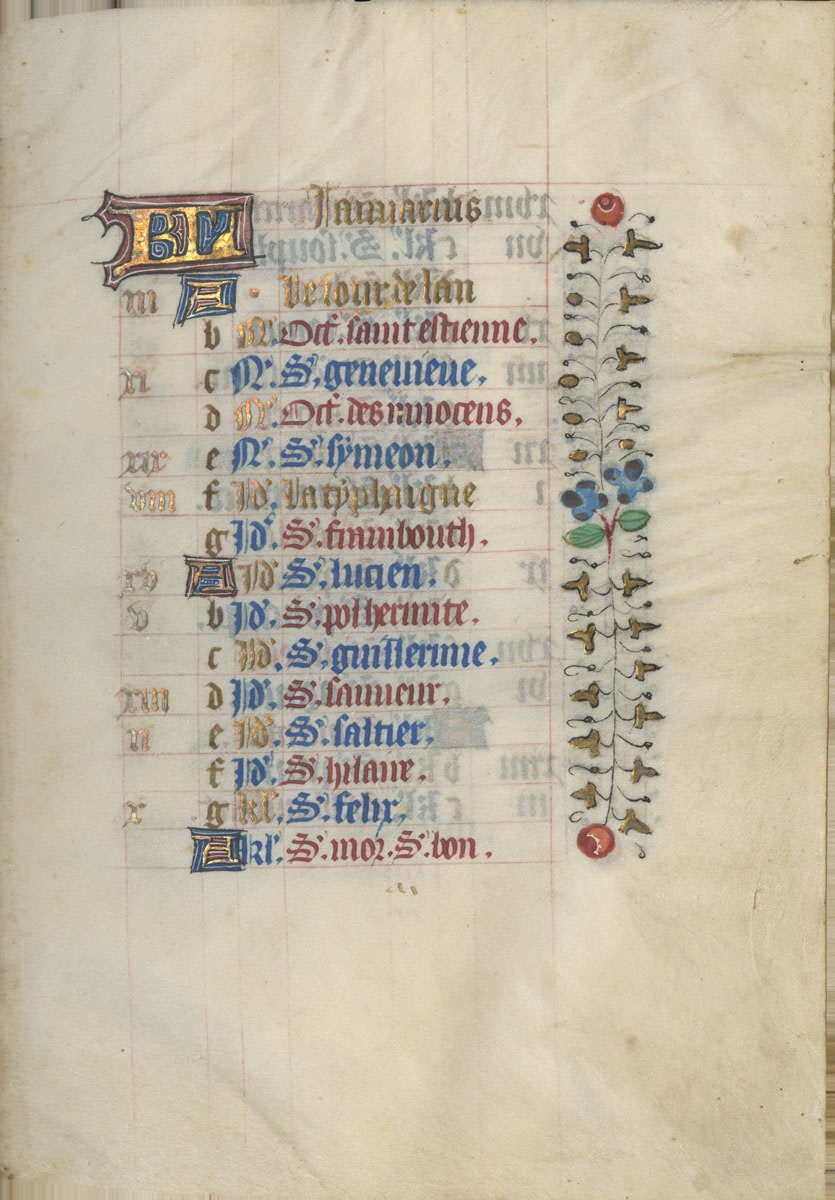 KL Januarius
iii A . Le jour de lan
b N. Oct. saint estienne.
xi c N. S. genevieve.
d N. Oct. des innocens.
xix e N. S. symeon.
viii f Id. La typhaigne
g Id. S. frambouth.
xvi A Id. S. lucien.
v b Id. S. pol hermite.
c Id. S. guillerme.
xiii d Id. S. sauveur.
ii e Id. S. saltier.
f Id. S. hilaire.
x g kl. S. felix.
A kl. S. mor. S. bon.